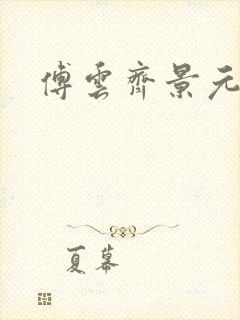 傅雲齊景元
夏幕